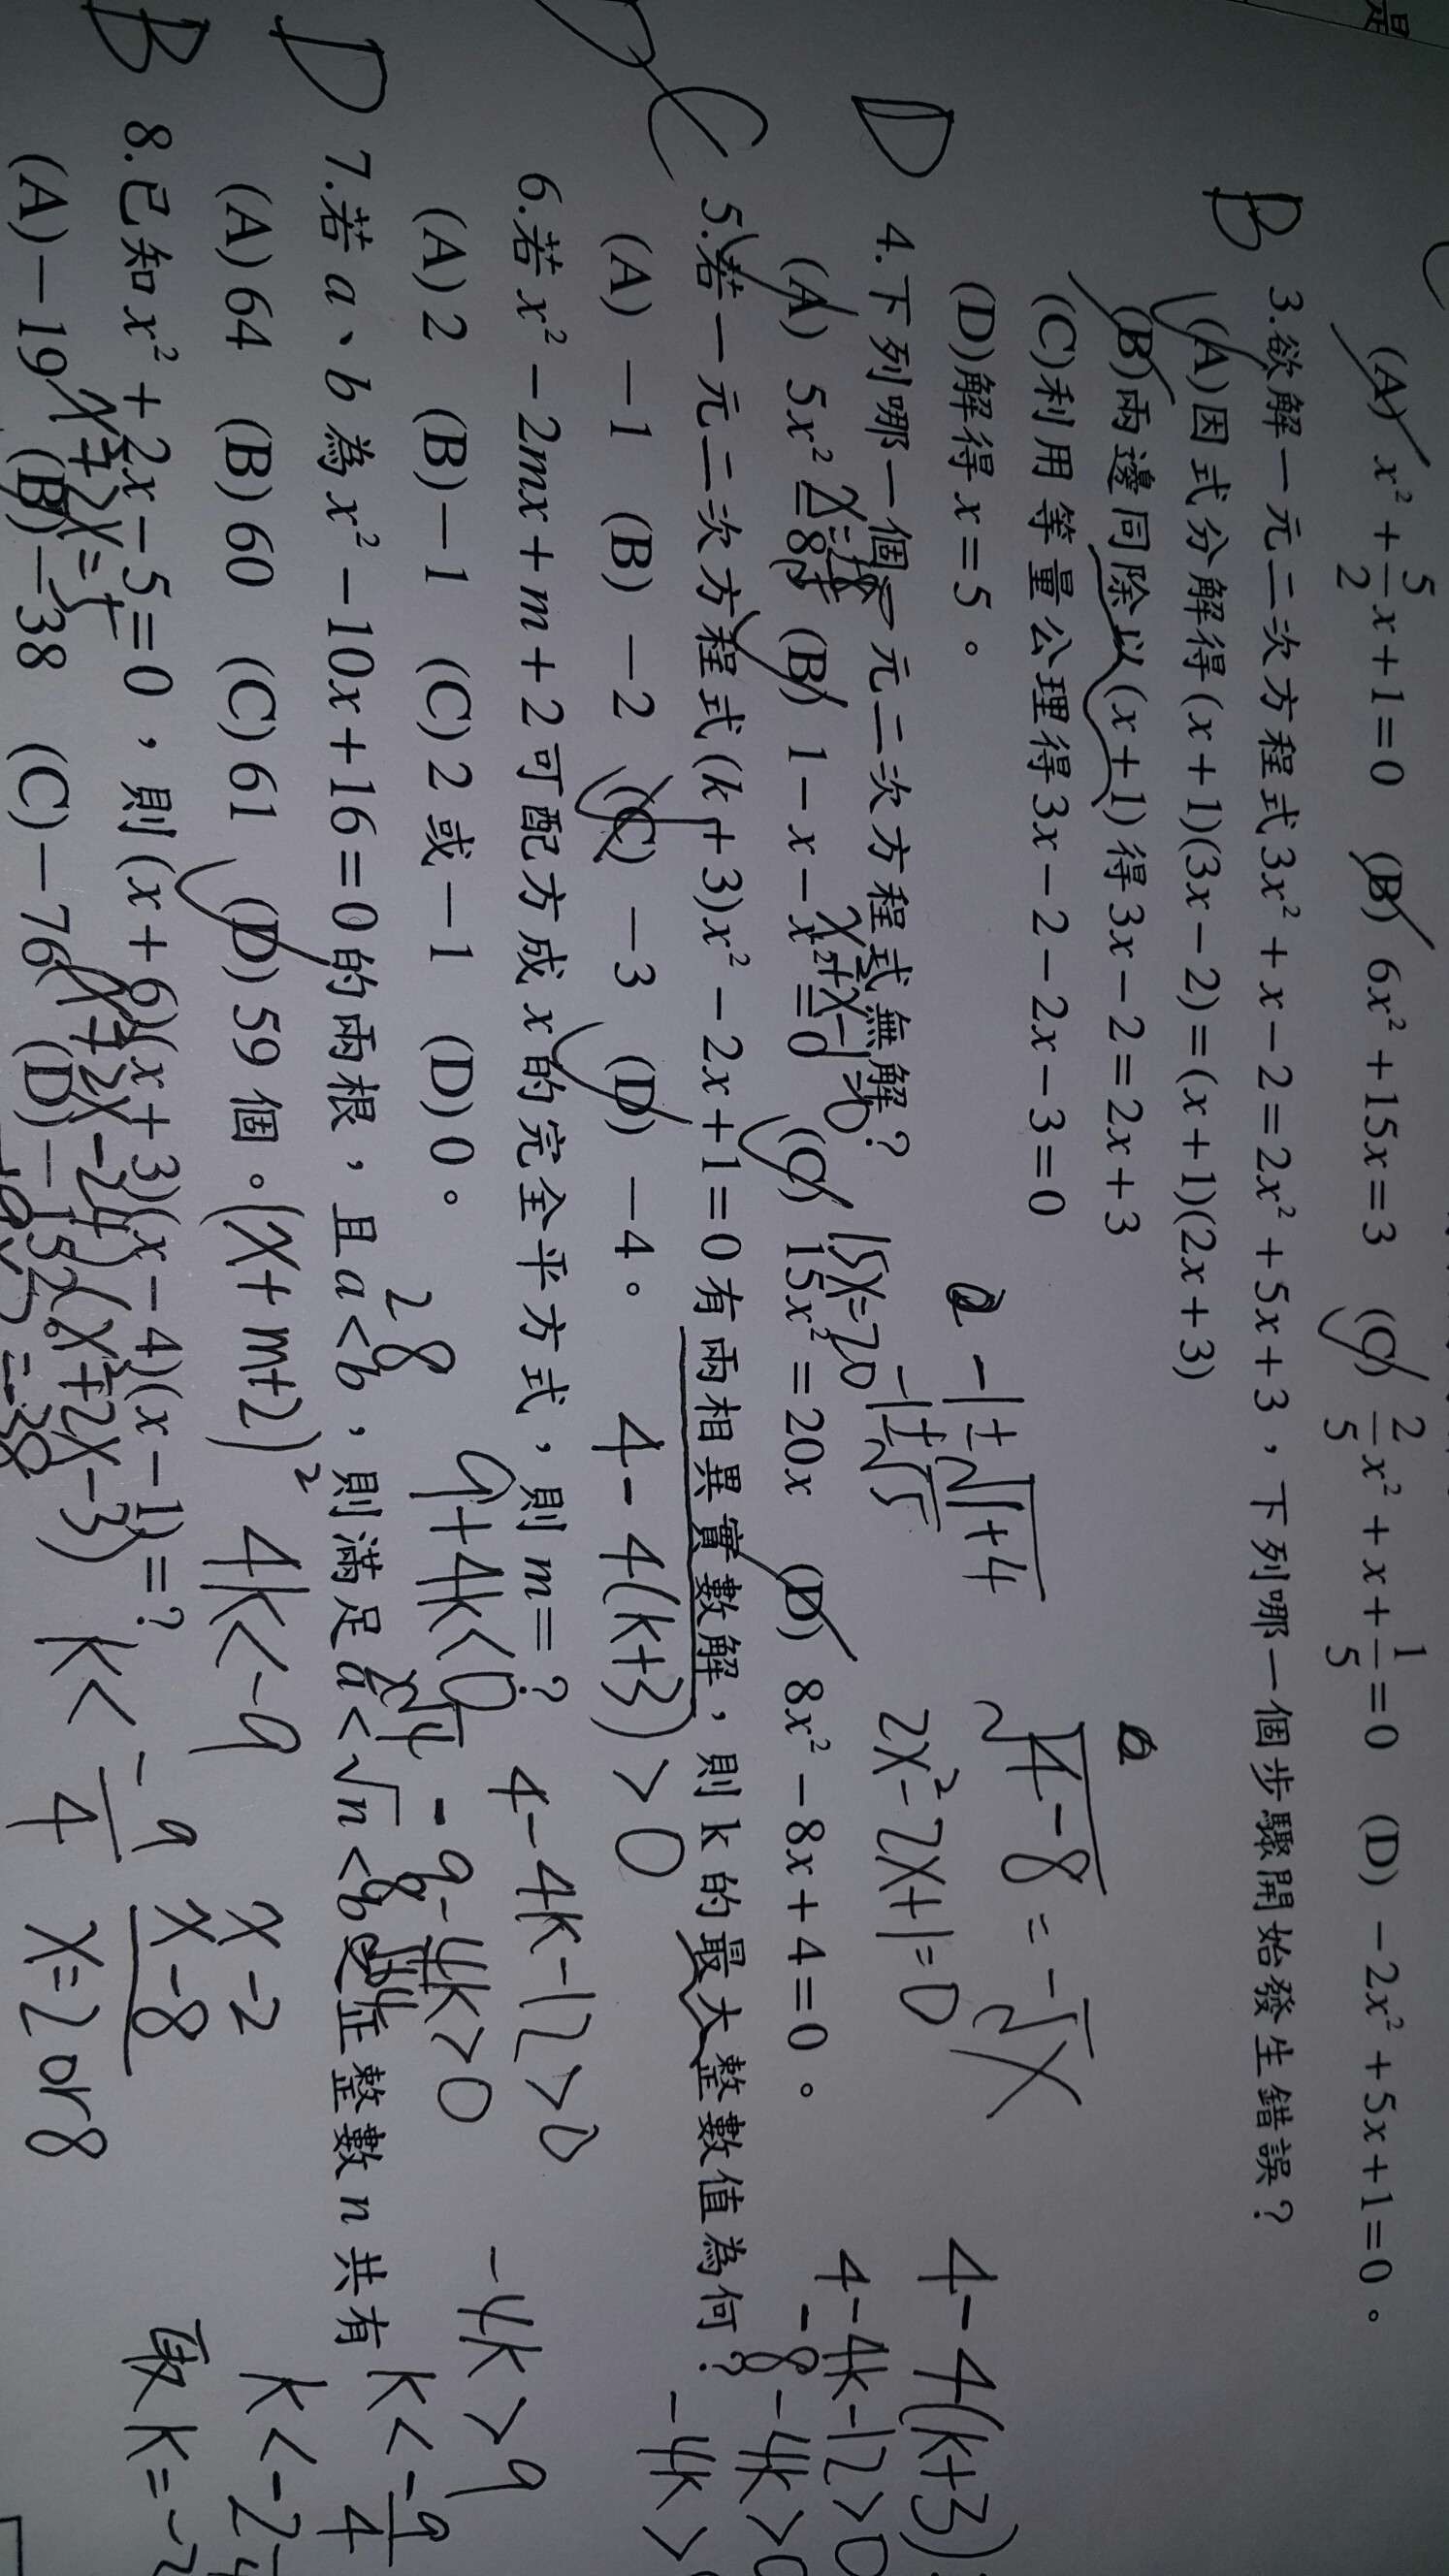 是
(A) x² + 5/2 x + 1 = 0 (B) 6x² + 15x = 3 (C) 2/5 x² + x + 1/5 = 0 (D) −2x² + 5x + 1 = 0。
B 3.欲解一元二次方程式3x² + x − 2 = 2x² + 5x + 3,下列哪一個步驟開始發生錯誤?
(A)因式分解得(x + 1)(3x − 2) = (x + 1)(2x + 3)
(B)兩邊同除以(x + 1)得3x − 2 = 2x + 3
(C)利用等量公理得3x − 2 − 2x − 3 = 0
(D)解得x = 5。
−1±√1+4
√4−8 = −√
4−4(k+3)
D 4.下列哪一個一元二次方程式無解?
x²+x−1=0
15x=20
−1±√5
2x²−2x+1=0
4−4k−12>0
(A) 5x² = 8 (B) 1 − x − x² = 0 (C) 15x² = 20x (D) 8x² − 8x + 4 = 0。
−8−4k>0
C 5.若一元二次方程式(k + 3)x² − 2x + 1 = 0有兩相異實數解,則k的最大整數值為何?
−4k>
(A) −1 (B) −2 (C) −3 (D) −4。
4−4(k+3)>0
6.若x² − 2mx + m + 2可配方成x的完全平方式,則m = ?
4−4k−12>0
−4k>9
(A) 2 (B) −1 (C) 2或−1 (D) 0。
28
9+4k<0
−9−4k>0
k<−9/4
D 7.若a、b為x² − 10x + 16 = 0的兩根,且a < b,則滿足a < √n < b之正整數n共有
(A) 64 (B) 60 (C) 61 (D) 59 個。
(x+m+2)²
4k<−9
x −2
x −8
k<−2
B 8.已知x² + 2x − 5 = 0,則(x + 6)(x + 3)(x − 4)(x − 1) = ?
k<−9/4
x=2 or 8
最k=−
x²+2x=5
(x²+2x−24)(x²+2x−3)
(A) −19 (B) −38 (C) −76 (D) −152。
=−38